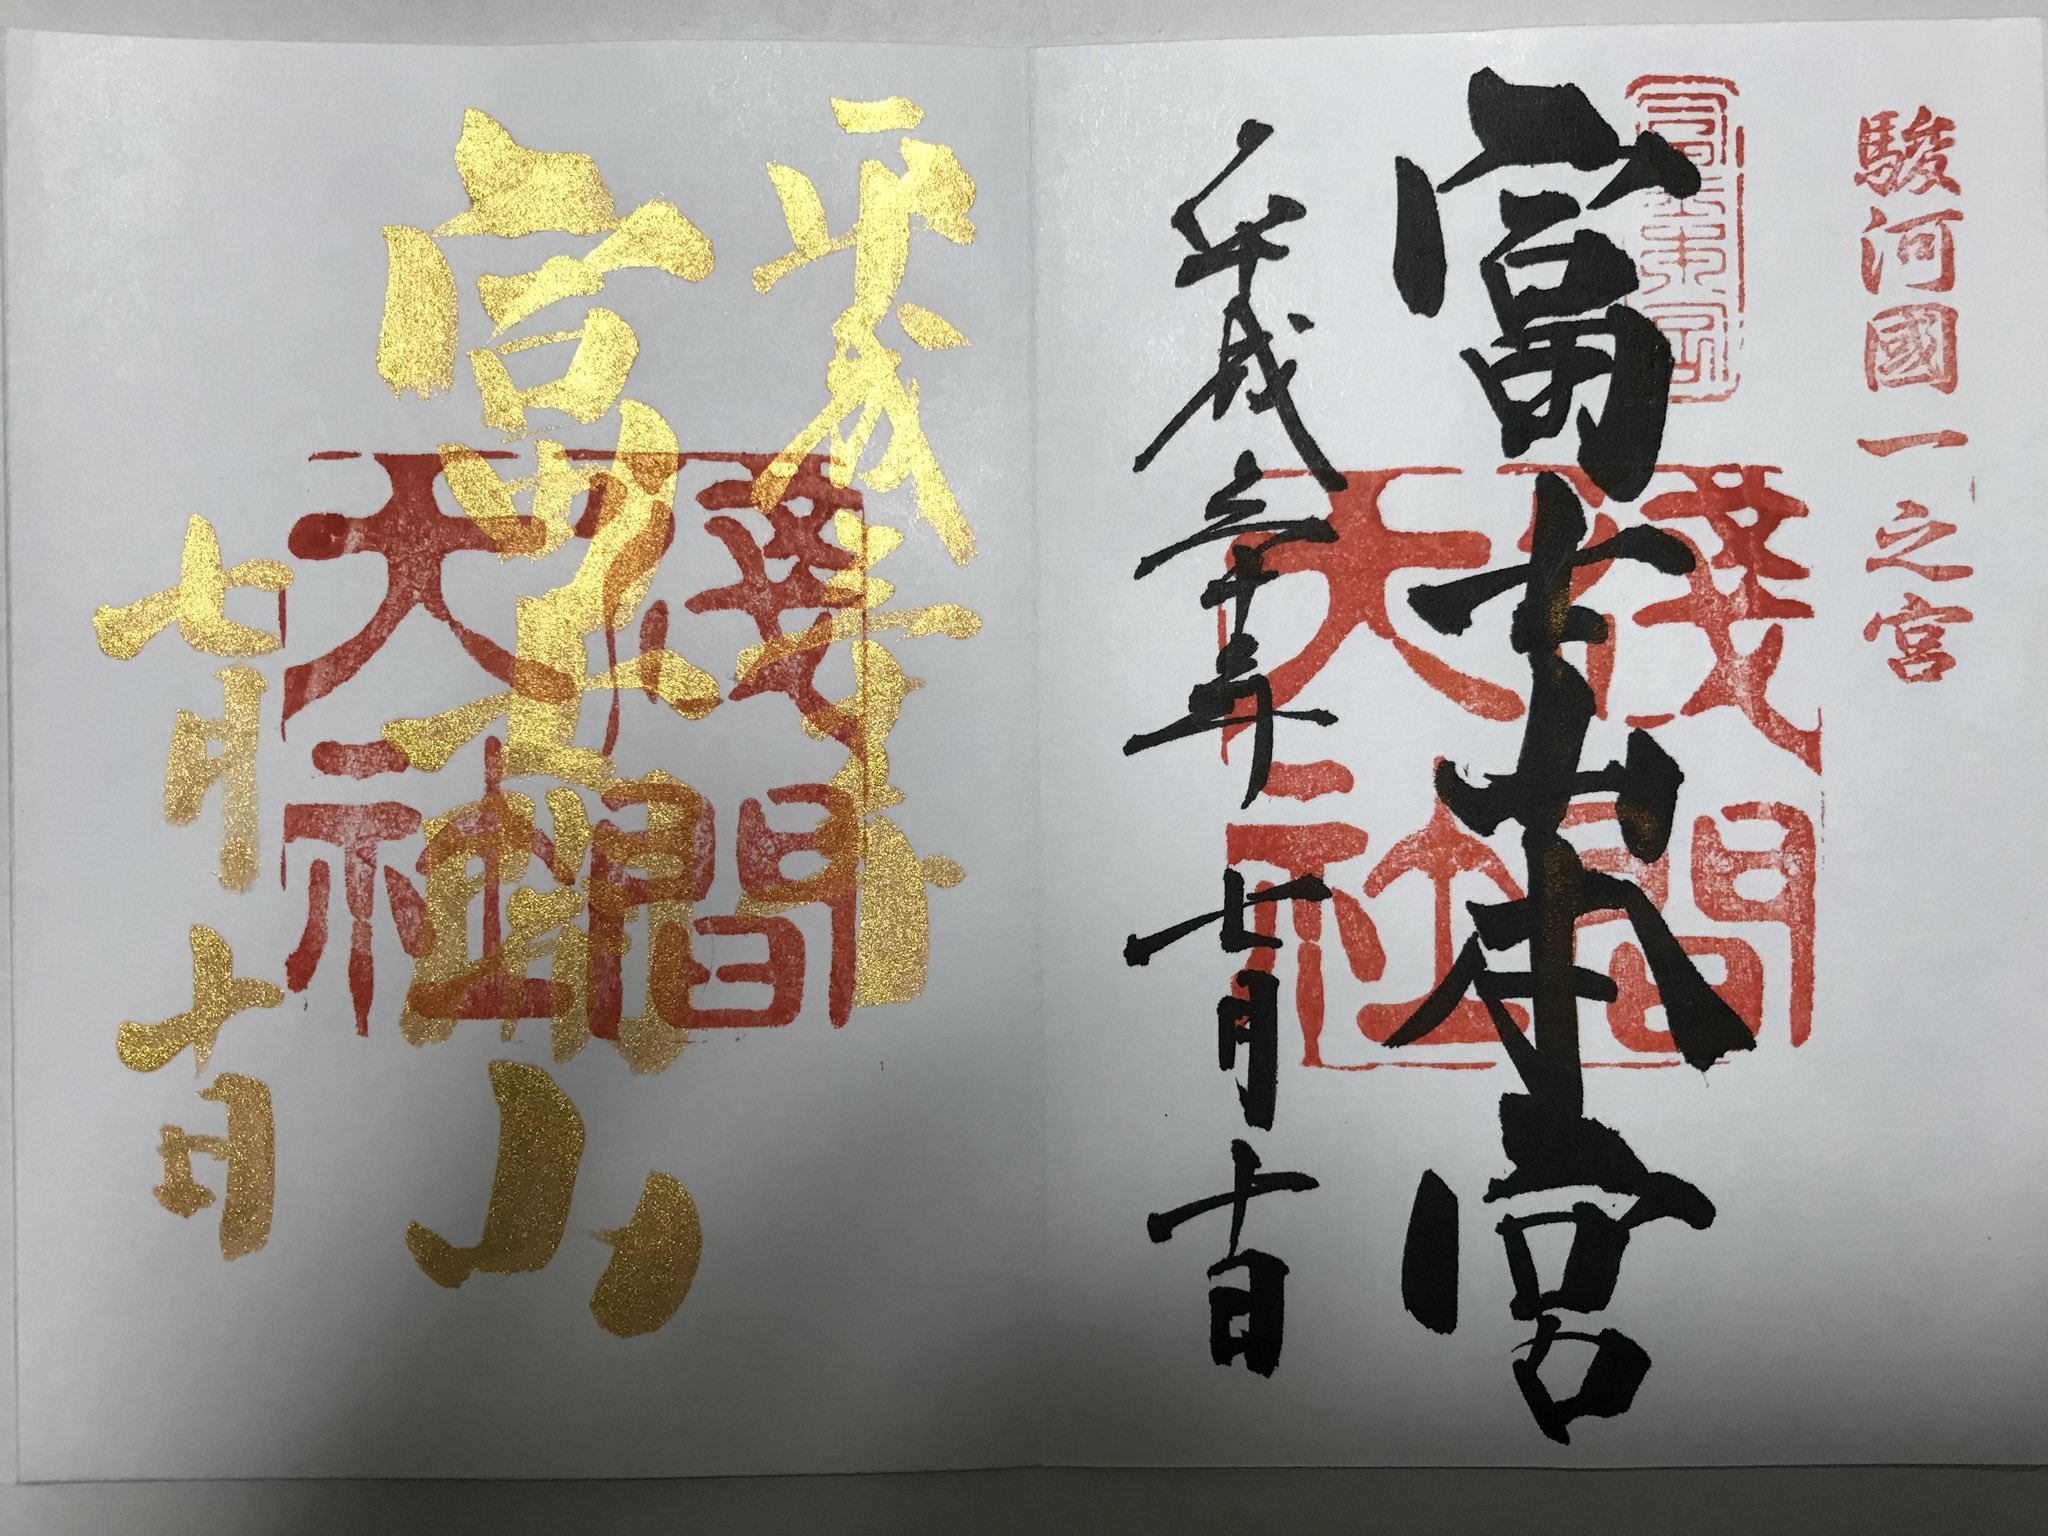 駿河國一之宮
富士本宮
富士本宮
淺間
大社
平成三十年七月十日
平成三十年
富士開山
淺間
大社
七月十日